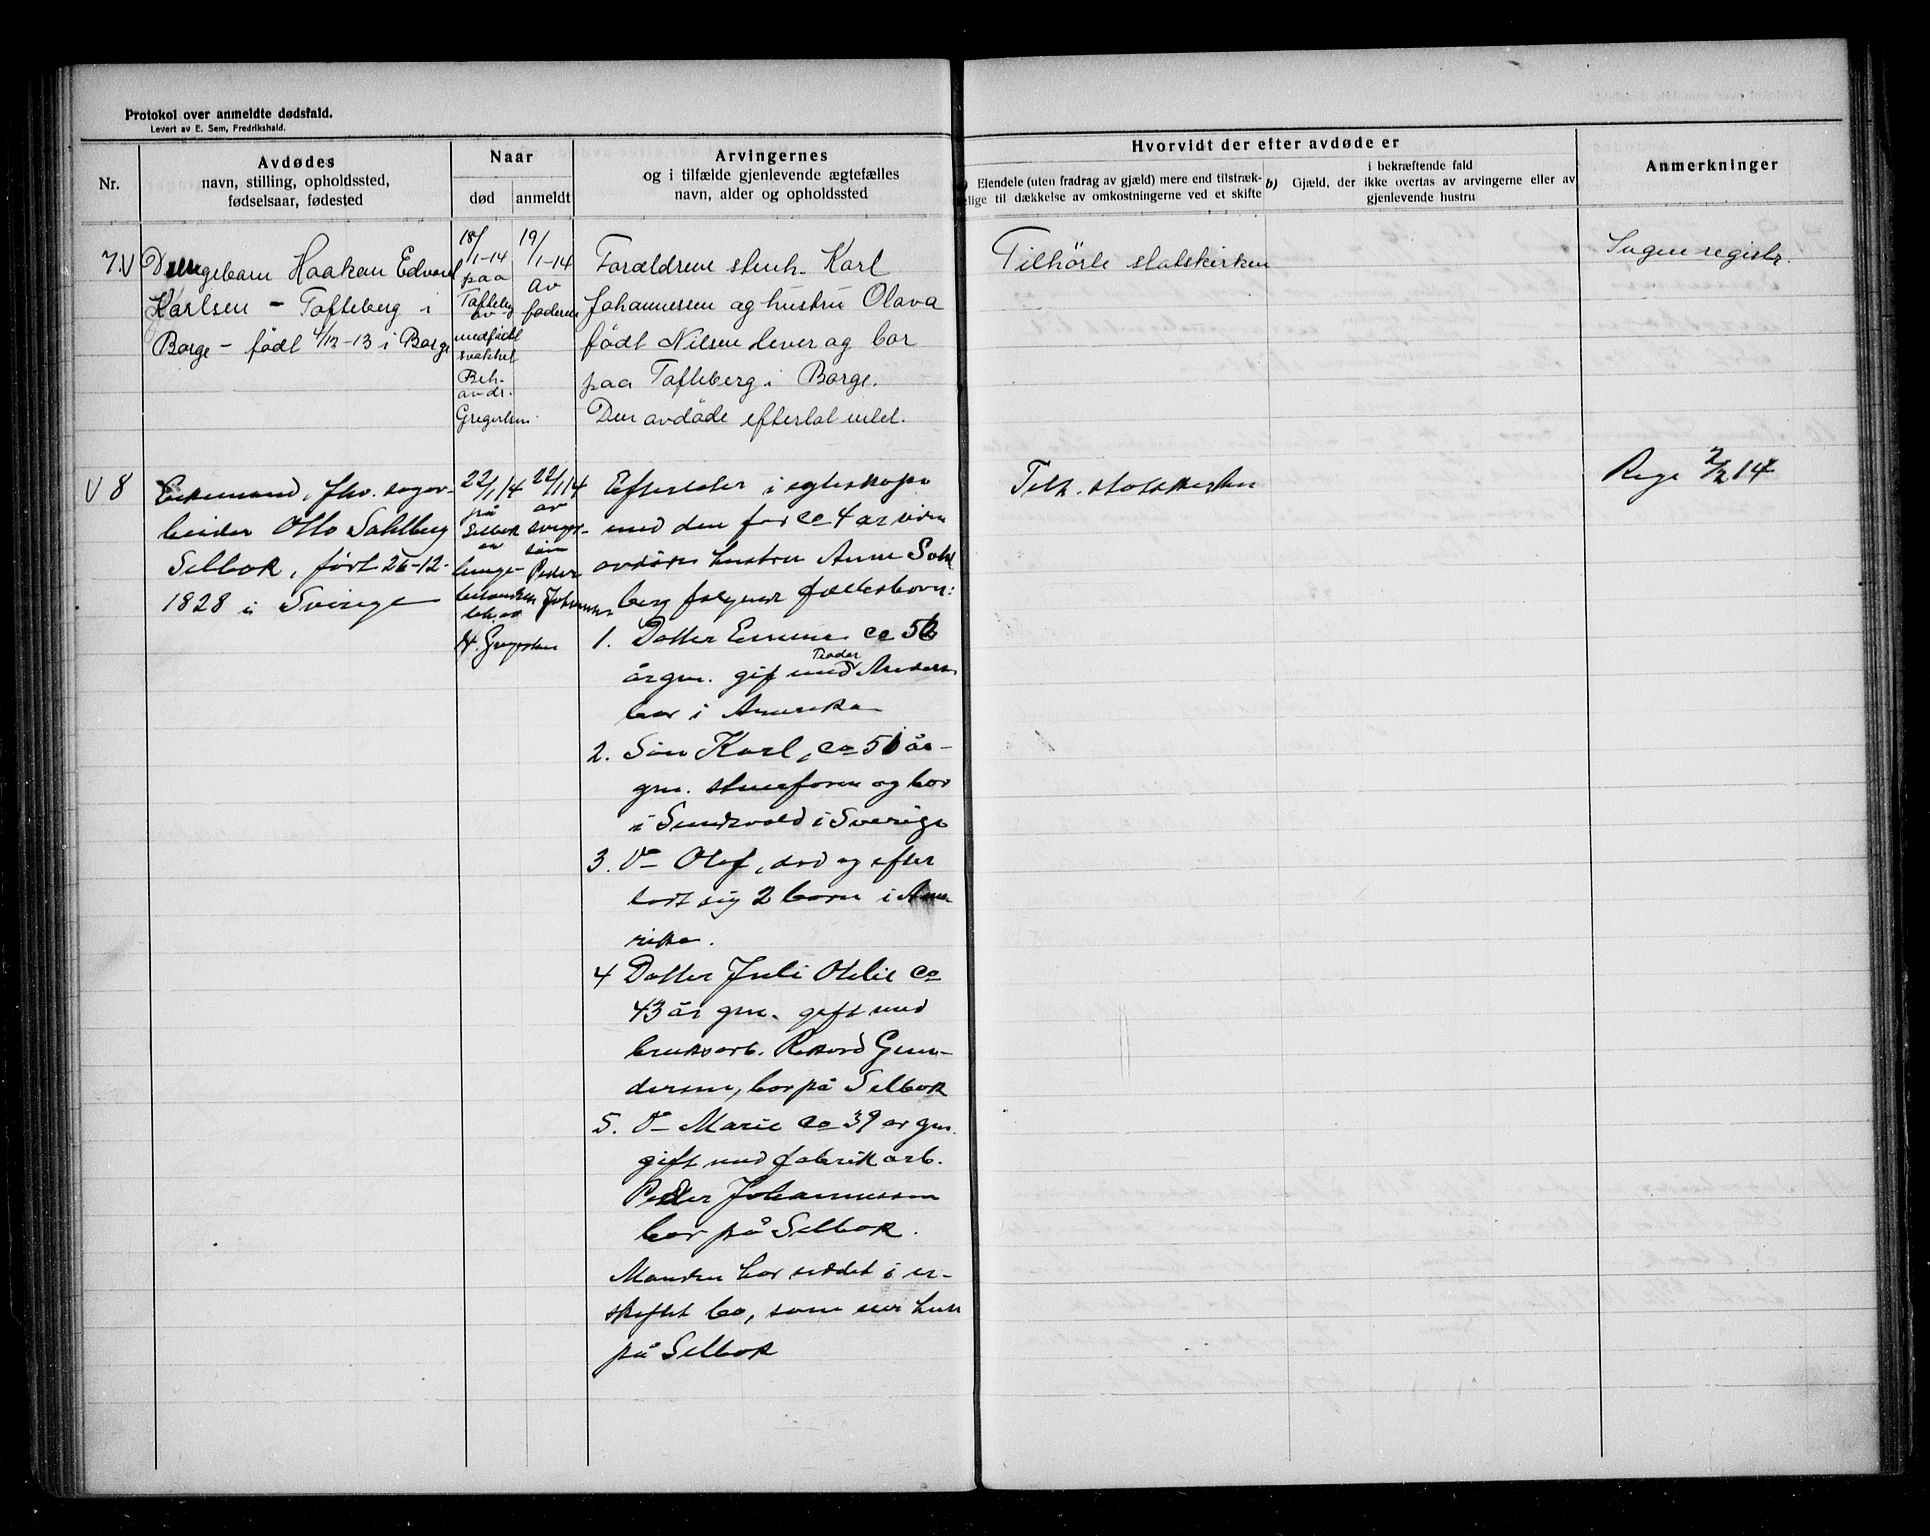 Protokol over anmeldte dødsfald.
Levert av E. Sem, Fredrikshald.
Nr.
Avdødes
navn, stilling, opholdssted,
fødselsaar, fødested
Naar
død
anmeldt
Arvingernes
og i tilfælde gjenlevende ægtefælles
navn, alder og opholdssted
Hvorvidt der efter avdøde er
Eiendele (uten fradrag av gjæld) mere end tilstræk-
elige til dækkelse av omkostningerne ved et skifte
b) Gjæld, der
i bekræftende fald
ikke overtas av arvingerne eller av
gjenlevende hustru
Anmerkninger
7. V
Drengebarn Haakon Edvard
Karlsen - Tofteberg i
Borge - født 4/12-13 i Borge
18/1-14
paa
Tofteberg
av
medfødt
svakhet
Beh.
av dr.
Gregersen.
19/1-14
av
faderen
Forældrene stenh. Karl
Johannessen og hustru Olava
født Nilsen lever og bor
paa Tofteberg i Borge.
Den avdøde efterlot intet.
Tilhörte statskirken
Ingen registr.
V 8
Enkemand, fhv. sagar-
beider Otto Sahlberg
Selbak, født 26-12-
1828 i Sverige
22/1 14
på
Selbak
av
lunge-
beh. av
H. Gregersen
22/1 14
av
sviger-
søn
Peder
Johannessen
Efterlater i egteskap
med den for ca 4 år siden
avdøde hustru Anne Sahl
berg følgende fællesbarn:
1. Datter Emma ca 52
år gm. gift med Anders
bor i Amerika
2. Søn Karl, ca 51 år
gm. og bor
i Sundsvald i Sverige
3. Do Olaf, død og efter
lodt sig 2 barn i Ame
rika.
4 Datter Juli Otilie ca
43 år gm. gift med
bruksarb. Rikard Gun-
dersen, bor på Selbak
5. Do Marie ca 39 år gm.
gift med fabrikarb.
Peder Johannessen
bor på Selbak.
Manden har siddet i u-
skiftet bo, som eier hus
på Selbak
Tilh. statskirken
Regi 2/2 14